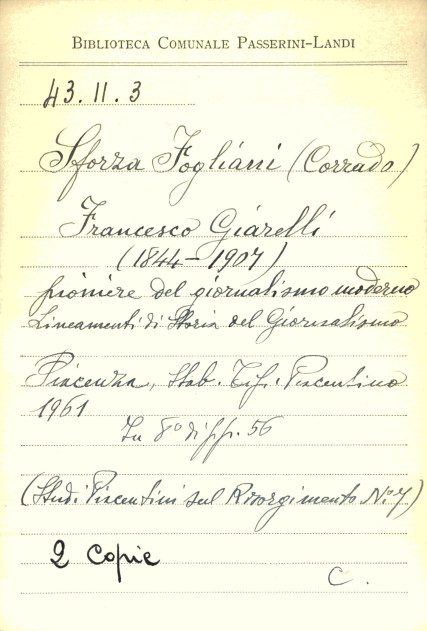 BIBLIOTECA COMUNALE PASSERINI-LANDI
43.II.3
Sforza Fogliani (Corrado)
Francesco Giarelli
(1844-1907)
pioniere del giornalismo moderno
Lineamenti di Storia del Giornalismo
Piacenza, Stab. Tip. Piacentino
1961
In 8° di pp. 56
(Studi Piacentini sul Risorgimento N° 7)
2 copie
C.